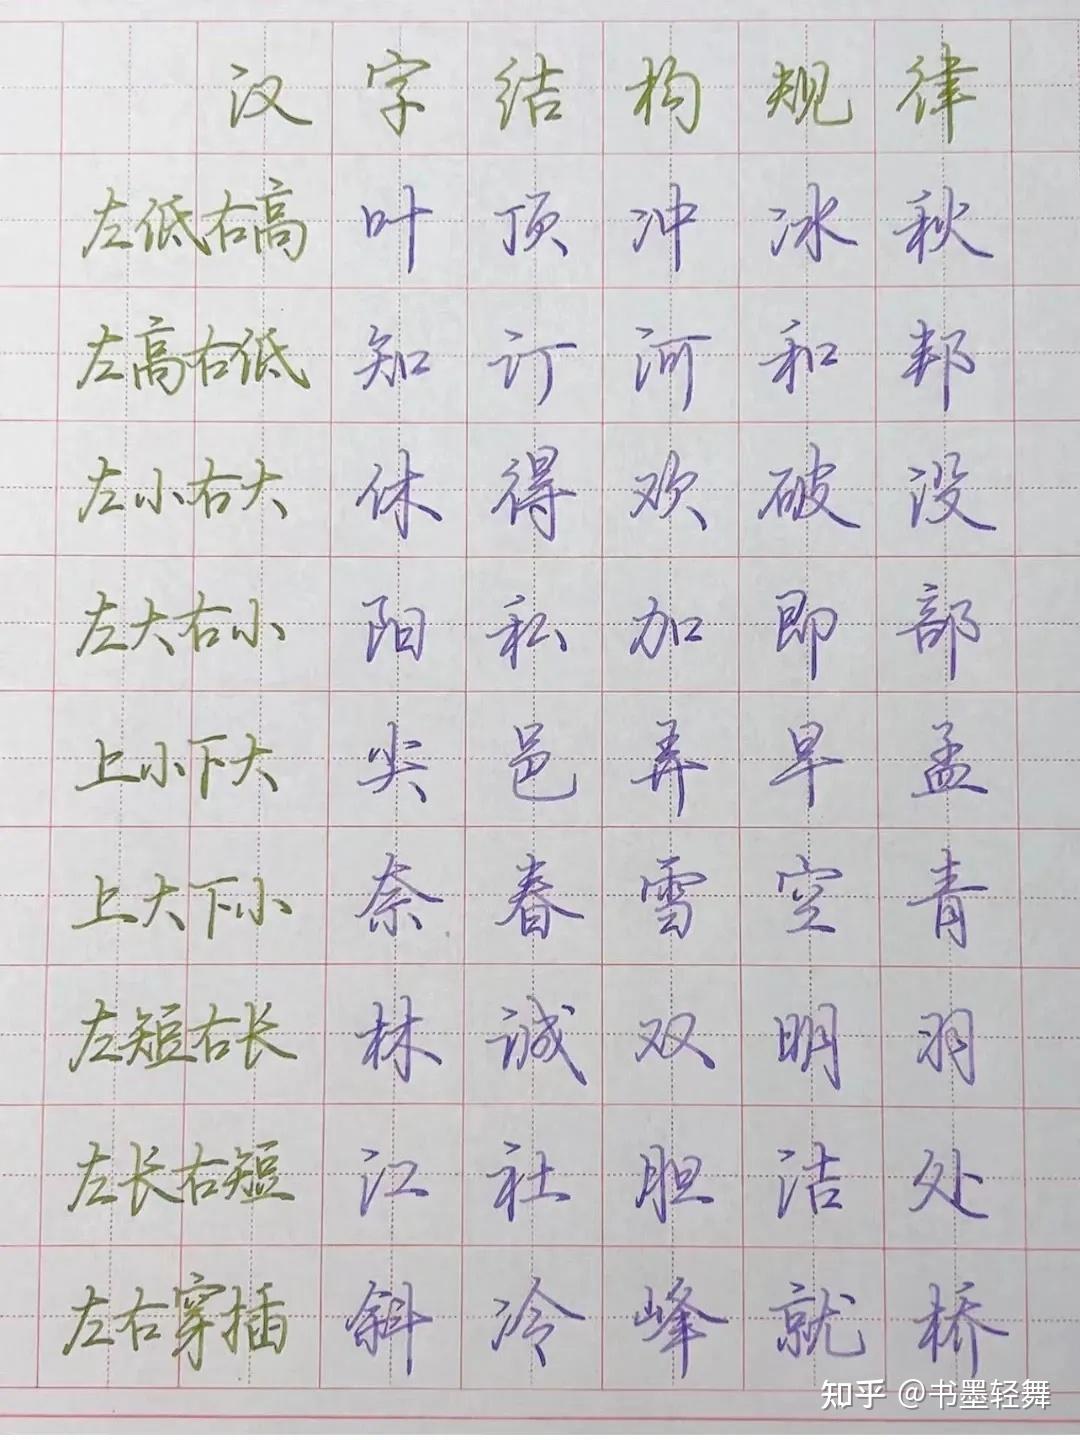 汉字结构规律
左低右高 叶 顶 冲 冰 秋
左高右低 知 订 河 和 邦
左小右大 休 得 欢 破 没
左大右小 阳 私 加 即 部
上小下大 尖 邑 弄 早 孟
上大下小 奈 春 雪 空 青
左短右长 林 诚 双 明 羽
左长右短 江 社 胆 洁 处
左右穿插 斜 冷 峰 就 桥
知乎 @书墨轻舞